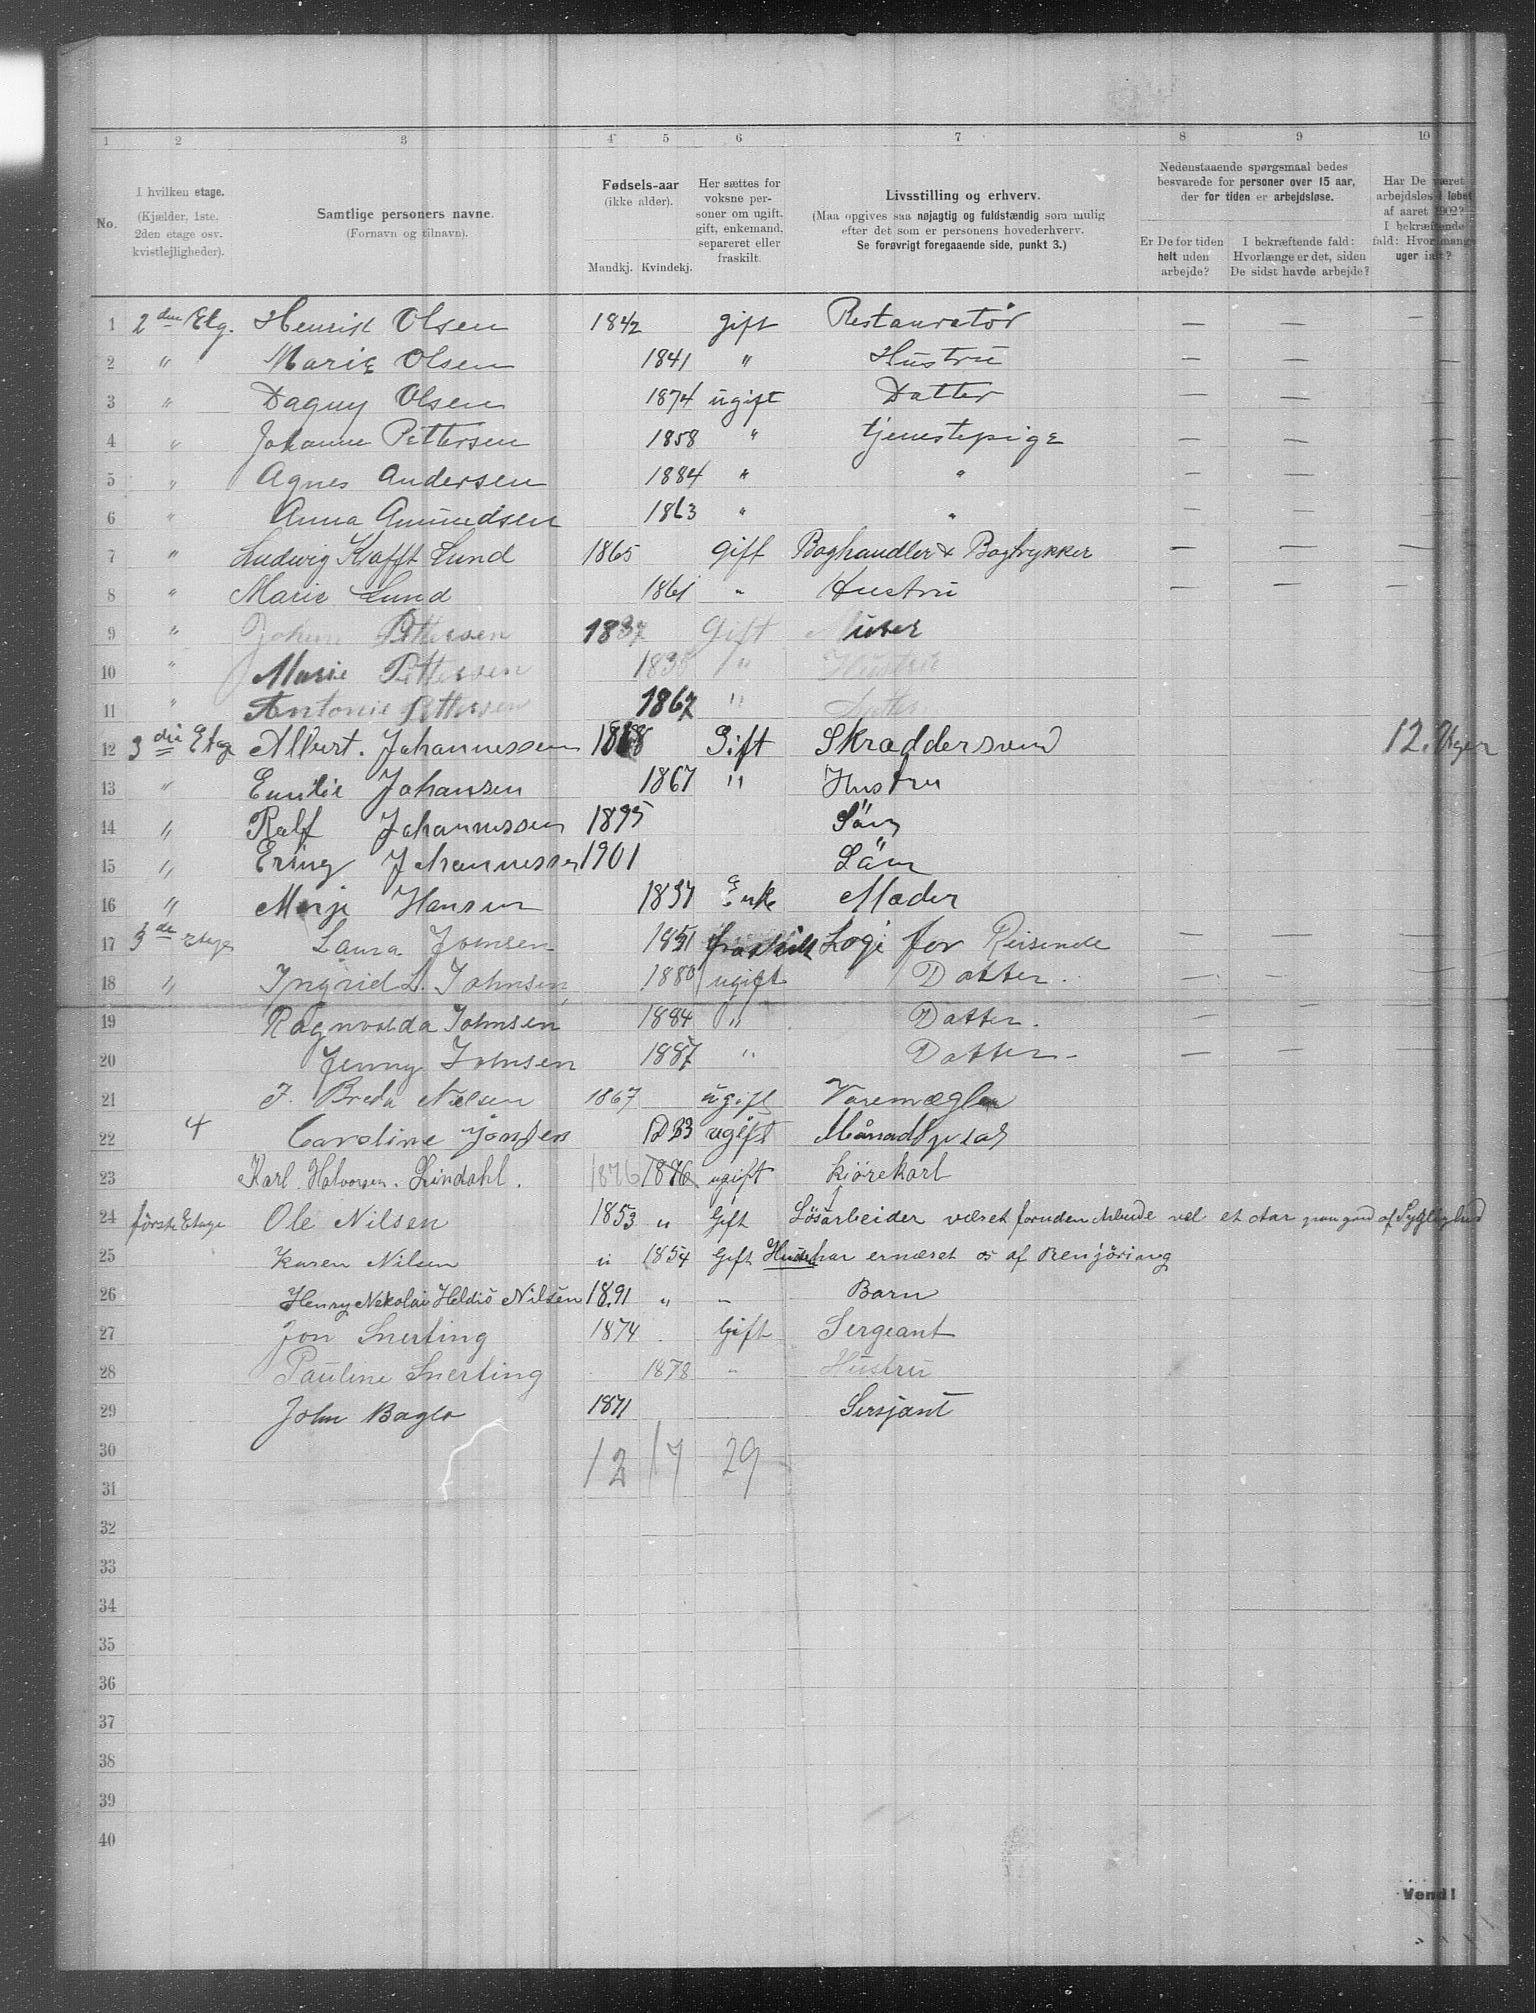 1 2 3 4 5 6 7 8 9 10
No.
I hvilken etage. (Kjælder, 1ste. 2den etage osv. kvistlejligheder).
Samtlige personers navne. (Fornavn og tilnavn).
Fødsels-aar (ikke alder). Mandkj. Kvindekj.
Her sættes for voksne personer om ugift, gift, enkemand, separeret eller fraskilt.
Livsstilling og erhverv. (Maa opgives saa nøjagtig og fuldstændig som mulig efter det som er personens hovederhverv. Se forøvrigt foregaaende side, punkt 3.)
Nedenstaaende spørgsmaal bedes besvarede for personer over 15 aar, der for tiden er arbejdsløse.
Er De for tiden helt uden arbejde?
I bekræftende fald: Hvorlænge er det, siden De sidst havde arbejde?
Har De været arbejdsløs i løbet af aaret 1902? I bekræftende fald: Hvor mange uger ialt?
1 2den Etg. Henrik Olsen 1842 gift Restauratør — — —
2 " Marie Olsen 1841 " Hustru — — —
3 " Dagny Olsen 1874 ugift Datter — — —
4 " Johanne Pettersen 1858 " tjenestepige — — —
5 " Agnes Andersen 1884 " " — — —
6 " Anna Amundsen 1863 " " — — —
7 " Ludwig Krafft Lund 1865 gift Boghandler & Bogtrykker — — —
8 " Marie Lund 1861 " Hustru — — —
9 " Johan Pettersen 1837 Gift Murer
10 " Marie Pettersen 1838 " Hustru
11 " Antonie Pettersen 1867 " Datter
12 3die Etag Albert. Johannessen 1868 Gift Skræddersvend 12. Uger
13 " Emilie Johansen 1867 " Hustru
14 " Ralf Johannessen 1895 Søn
15 " Erling Johannessen 1901 Søn
16 " Hansen 1837 Enke Moder
17 3de Etage Laura Johnsen 1851 fraskilt Logi for Reisende — — —
18 " Ingrid L. Johnsen 1880 ugift Datter. — — —
19 Ragnvalda Johnsen 1884 " Datter. — — —
20 Jenny Johnsen 1887 " Datter — — —
21 J. Breda Nielsen 1867 ugift Varemægler
22 4 Caroline Jonsen 1833 ugift
23 Karl Halvorsen Lindahl. 1876 1876 ugift kjørekarl
24 første Etage Ole Nilsen 1853 " Gift Løsarbeider været foruden Arbeide vel et Aar paa grund af Sygelighed
25 Karen Nilsen " 1854 Gift Hustru har ernæret os af Renjøring
26 Henry Nikolai Heldio Nilsen 1891 " " Barn
27 Jon Snerting 1874 Gift Sergeant
28 Pauline Snerting 1878 " Hustru
29 John Baglo 1871 Sersjant
30 12 17 29
31
32
33
34
35
36
37
38
39
40
Vend!